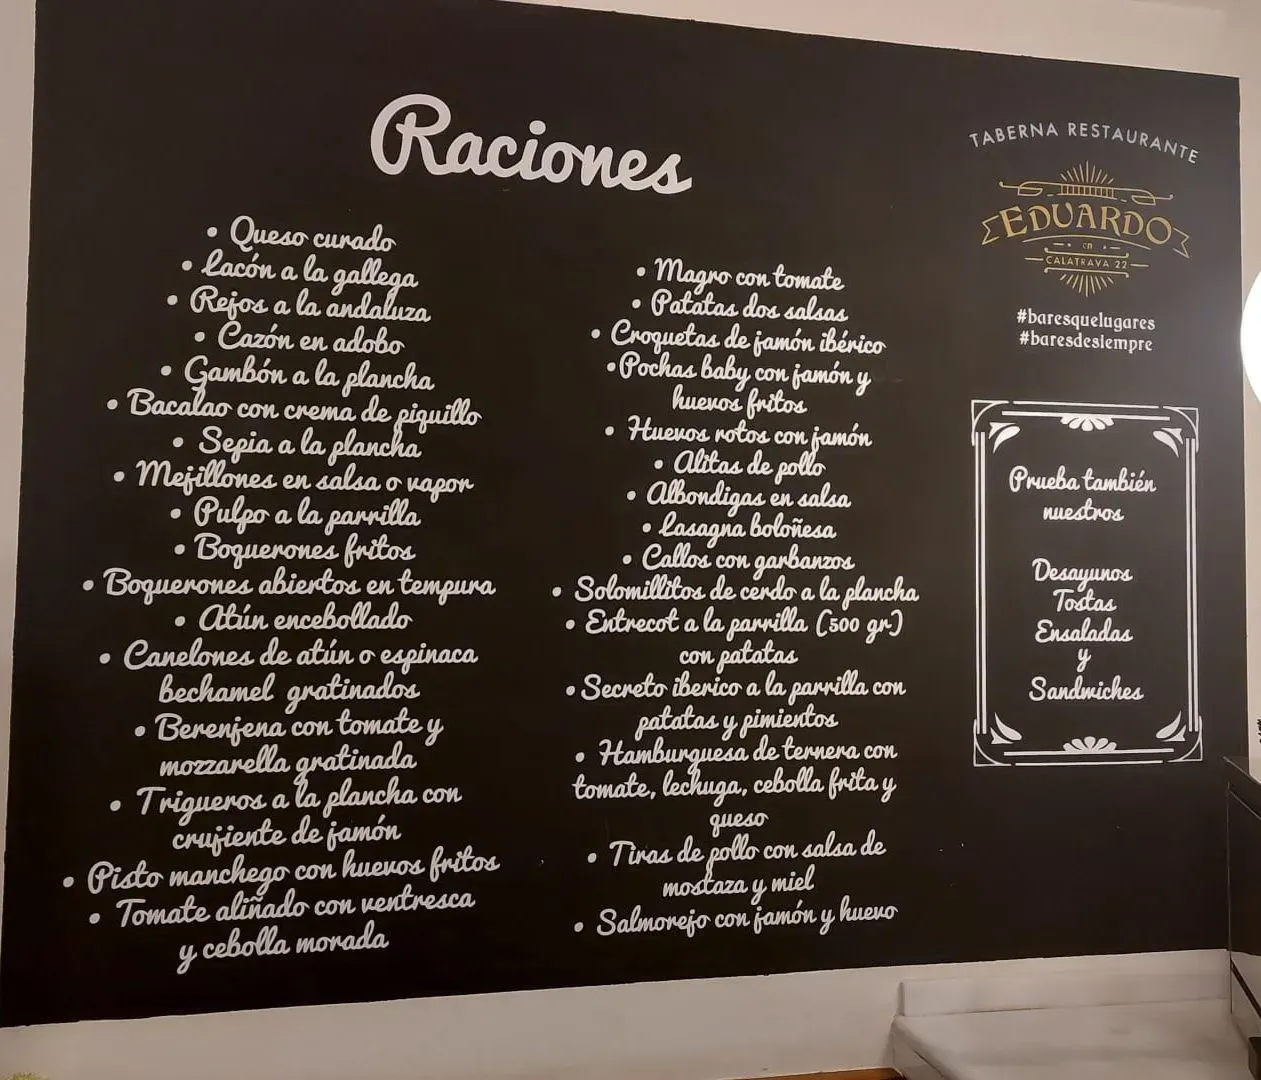 Raciones
• Queso curado
• Lacón a la gallega
• Rejos a la andaluza
• Cazón en adobo
• Gambón a la plancha
• Bacalao con crema de piquillo
• Sepia a la plancha
• Mejillones en salsa o vapor
• Pulpo a la parrilla
• Boquerones fritos
• Boquerones abiertos en tempura
• Atún encebollado
• Canelones de atún o espinaca
bechamel gratinados
• Berenjena con tomate y
mozzarella gratinada
• Trigueros a la plancha con
crujiente de jamón
• Pisto manchego con huevos fritos
• Tomate aliñado con ventresca
y cebolla morada
• Magro con tomate
• Patatas dos salsas
• Croquetas de jamón ibérico
• Pochas baby con jamón y
huevos fritos
• Huevos rotos con jamón
• Alitas de pollo
• Albondigas en salsa
• Lasagna boloñesa
• Callos con garbanzos
• Solomillitos de cerdo a la plancha
• Entrecot a la parrilla (500 gr.)
con patatas
• Secreto iberico a la parrilla con
patatas y pimientos
• Hamburguesa de ternera con
tomate, lechuga, cebolla frita y
queso
• Tiras de pollo con salsa de
mostaza y miel
• Salmorejo con jamón y huevo
TABERNA RESTAURANTE
EDUARDO
en
CALATRAVA 22
#baresquelugares
#baresdesiempre
Prueba también
nuestros
Desayunos
Tostas
Ensaladas
y
Sandwiches